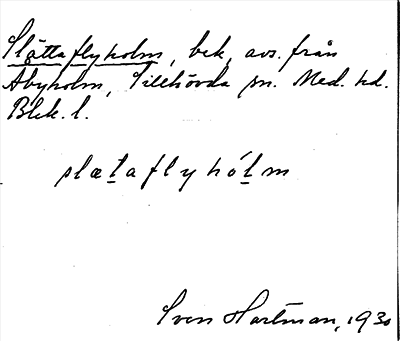 Slättaflyholm, bek, avs. från
Åbyholm, Tillhövda sn. Med. hd.
Blek. l.
slætaflyhólm
Sven Hartman, 1930